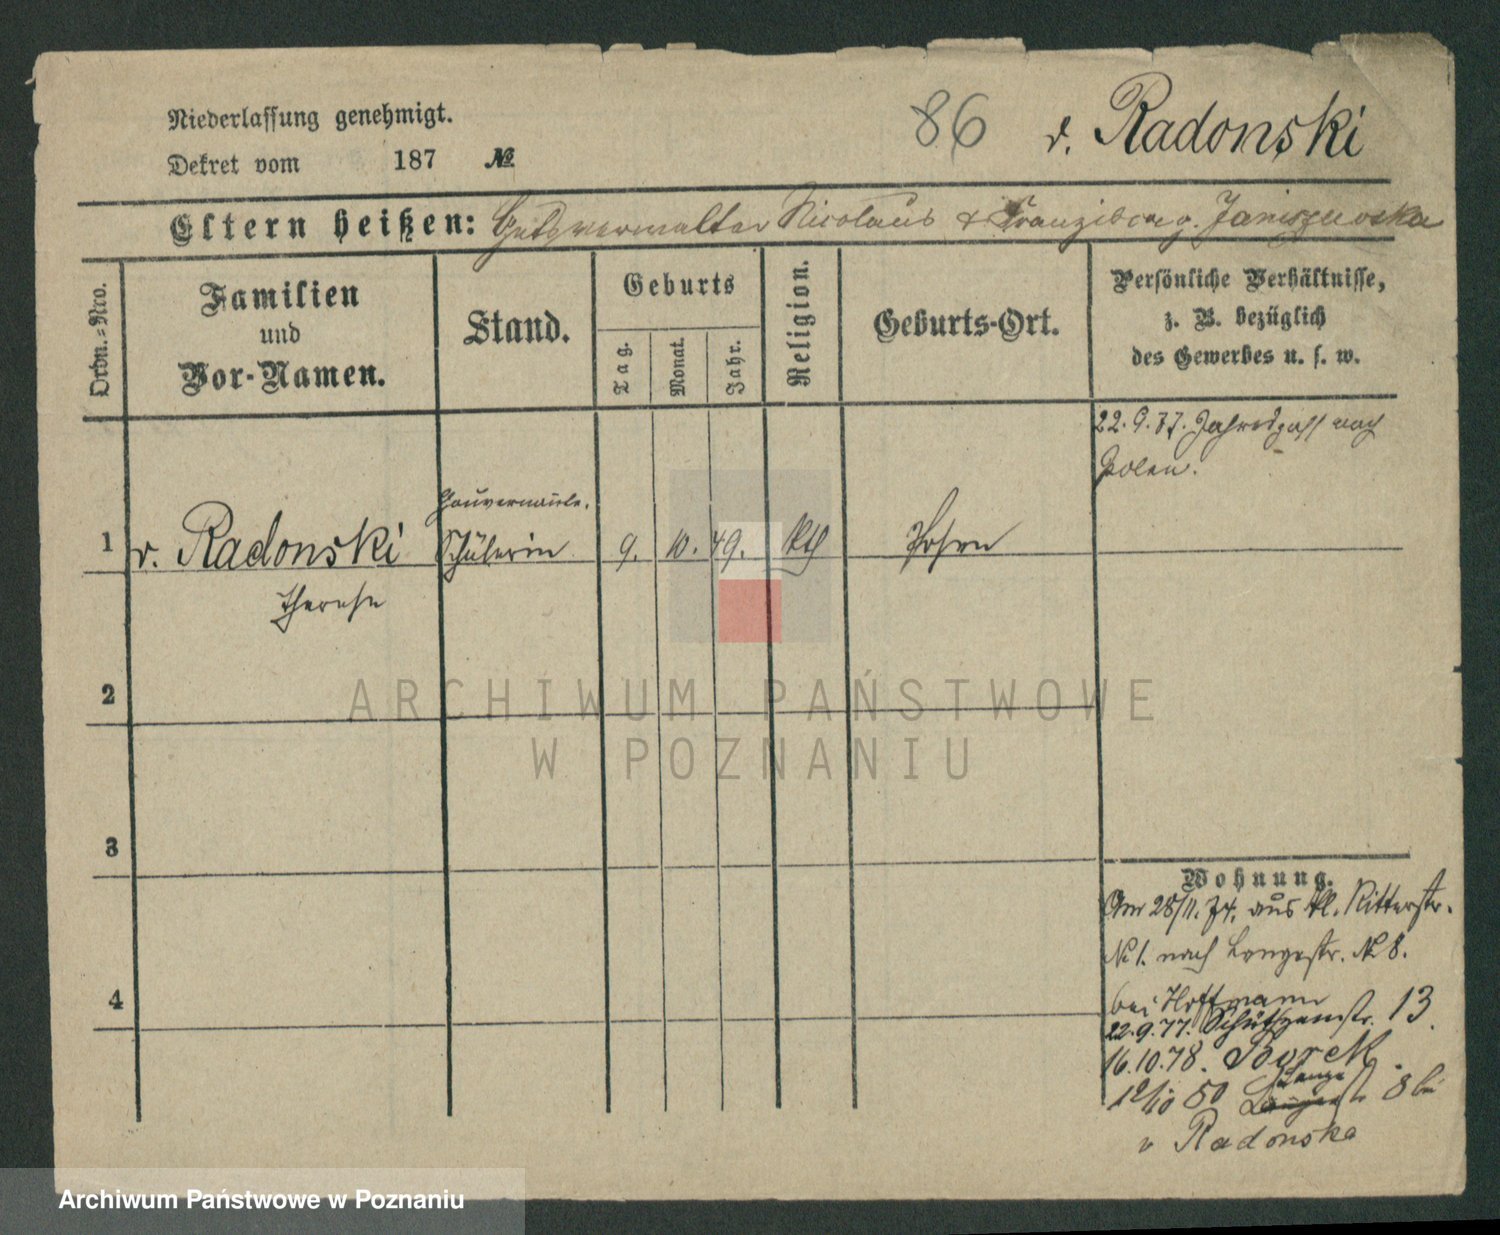 Niederlassung genehmigt.
86 v. Radonski
Dekret vom 187 №
Eltern heißen: Gutsverwalter Nicolaus & Franziska g. Janiszewska
Ordn.-Nro.
Familien
und
Vor-Namen.
Stand.
Geburts
Tag.
Monat.
Jahr.
Religion.
Geburts-Ort.
Persönliche Verhältnisse,
z. B. bezüglich
des Gewerbes u. s. w.
22.9.77. Jahrespaß nach
Polen.
Gouvernante.
1 v. Radonski Schülerin 9. 10. 49. kth Posen
Therese
2
3
4
Wohnung.
Am 28/11. 74. aus kl. Ritterstr.
№ 1. nach Langestr. № 8.
bei Hoffmann
22.9.77. Schützenstr. 13.
16.10.78. Borek.
12/10 80 Lange
str 8 bei
v Radonska
ARCHIWUM PAŃSTWOWE
W POZNANIU
Archiwum Państwowe w Poznaniu